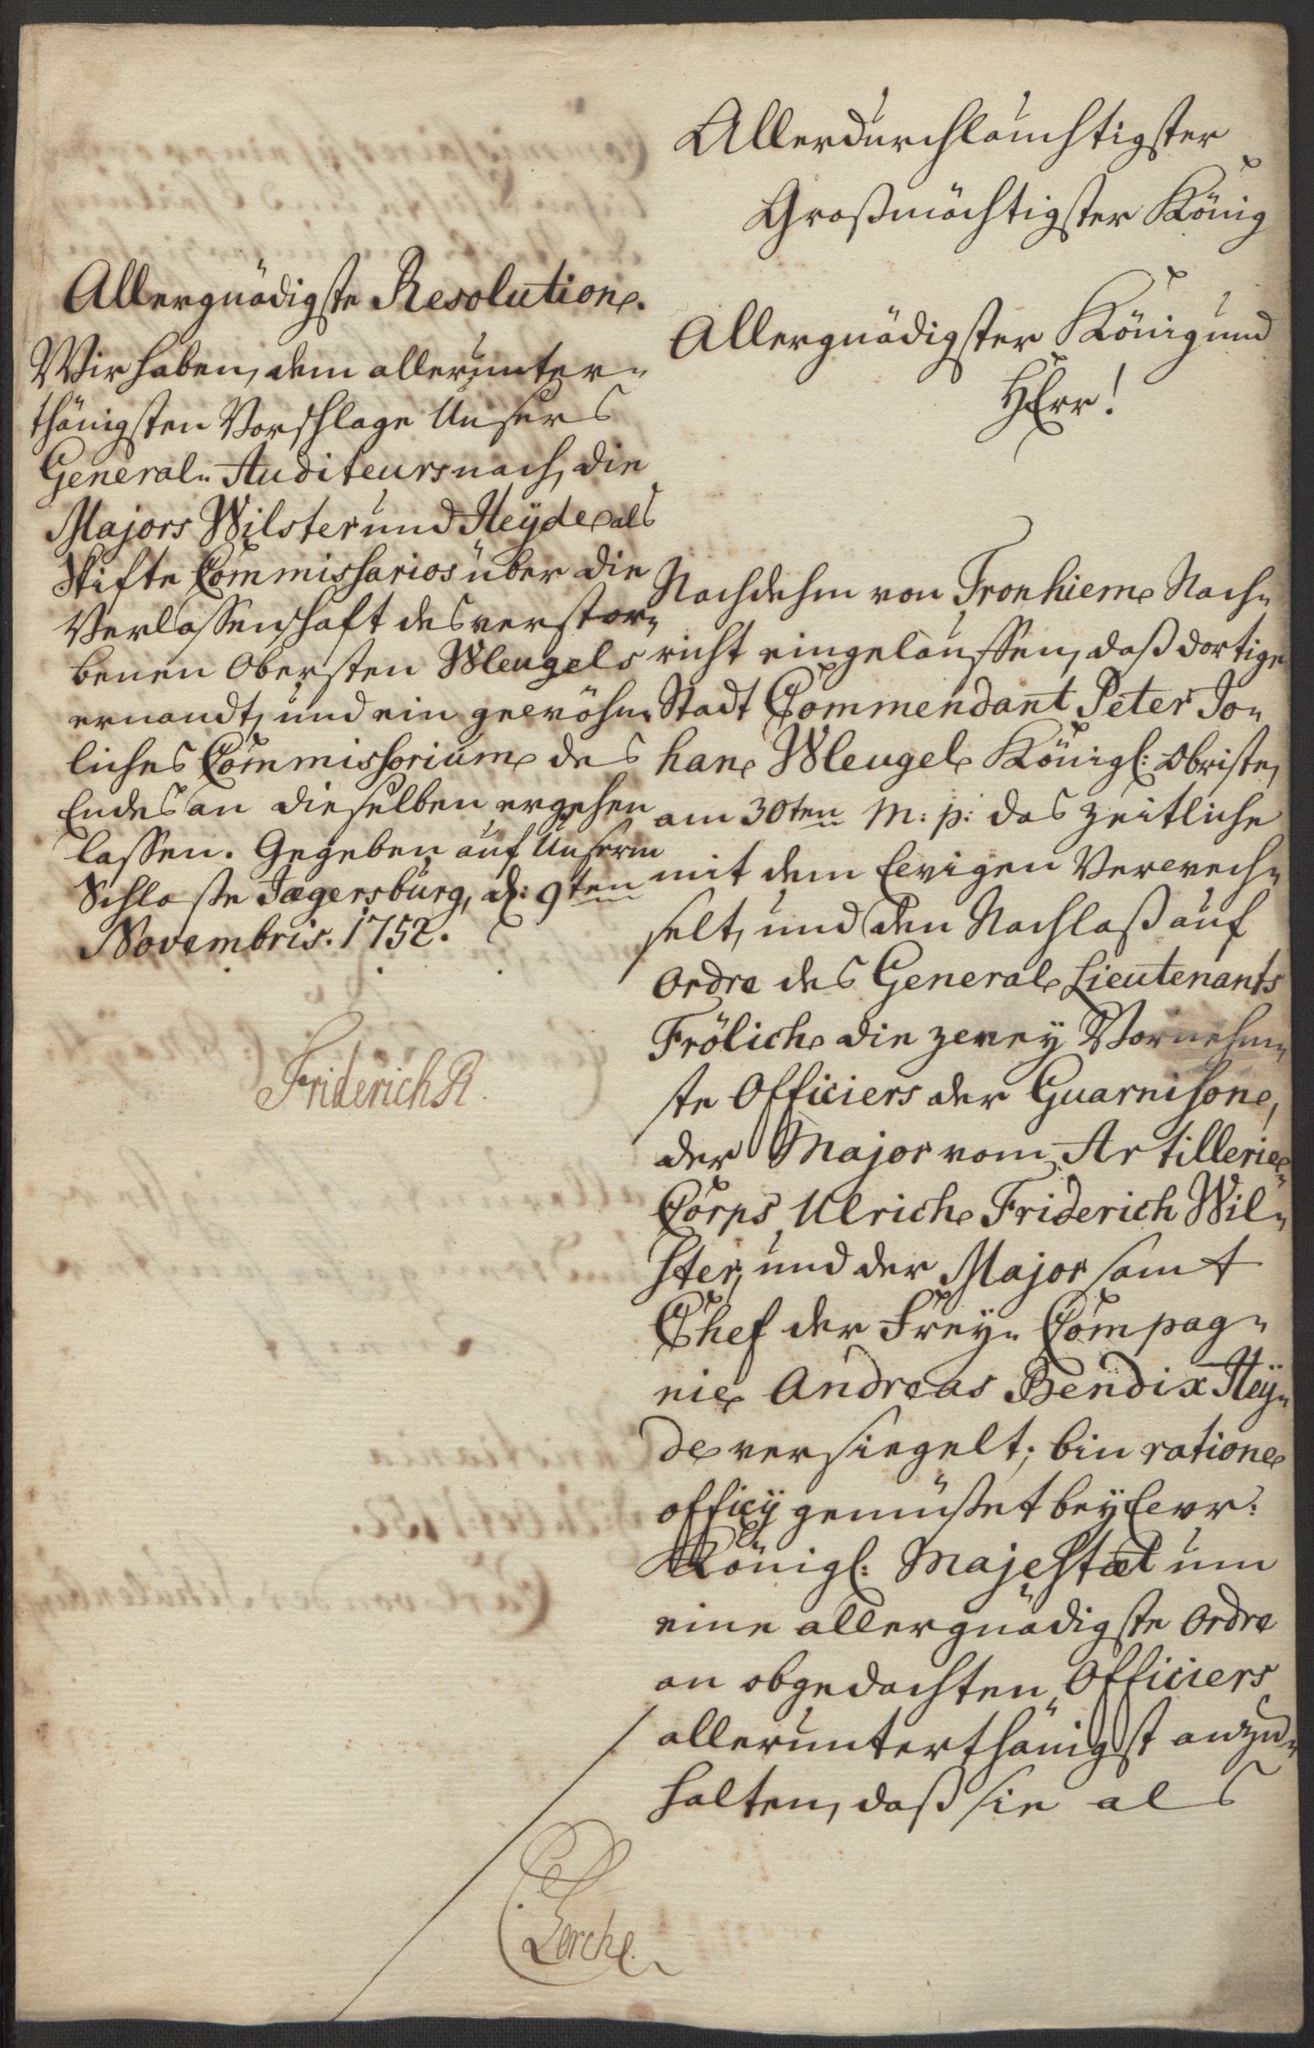 Allerdurchläuchtigster
Großmächtigster König
Allergnädigster König und
HErr!
Nachdehm von Tronhiem Nach-
richt eingelauffen, daß dortige
Stadt Commendant Peter Jo-
han Wleugel Königl: Obriste,
am 30ten m: p: das Zeitliche
mit dem Ewigen Verwech-
selt, und den Nachlaß auf
Ordre des General Lieutenants
Frölich die zwey Vornehm-
ste Officiers der Guarnison,
der Major vom Artillerie-
Corps Ulrich Friderich Wil-
ster, und der Major samt
Chef der Frey- Compag-
nie Andreas Bendix Hey-
de versiegelt; bin ratione
officij gemüßet bey Ewr:
Königl: Majestæt um
eine allergnädigste Ordre
an obgedachten Officiers
allerunterthänigst anzu-
halten, daß sie als
Allergnädigste Resolution.
Wir haben, dem allerunter-
thänigsten Vorschlage Unsers
General- Auditeurs nach, die
Majors Wilster und Heyde als
Skifte Commissarios über die
Verlassenschaft des verstor-
benen Obersten Wleugels
ernandt, und ein gewöhn-
liches Commissorium des
Endes an dieselben ergehen
lassen. Gegeben auf Unserm
Schlosse Jægersburg, d: 9ten
Novembris. 1752.
Friderich R.
Lerche.